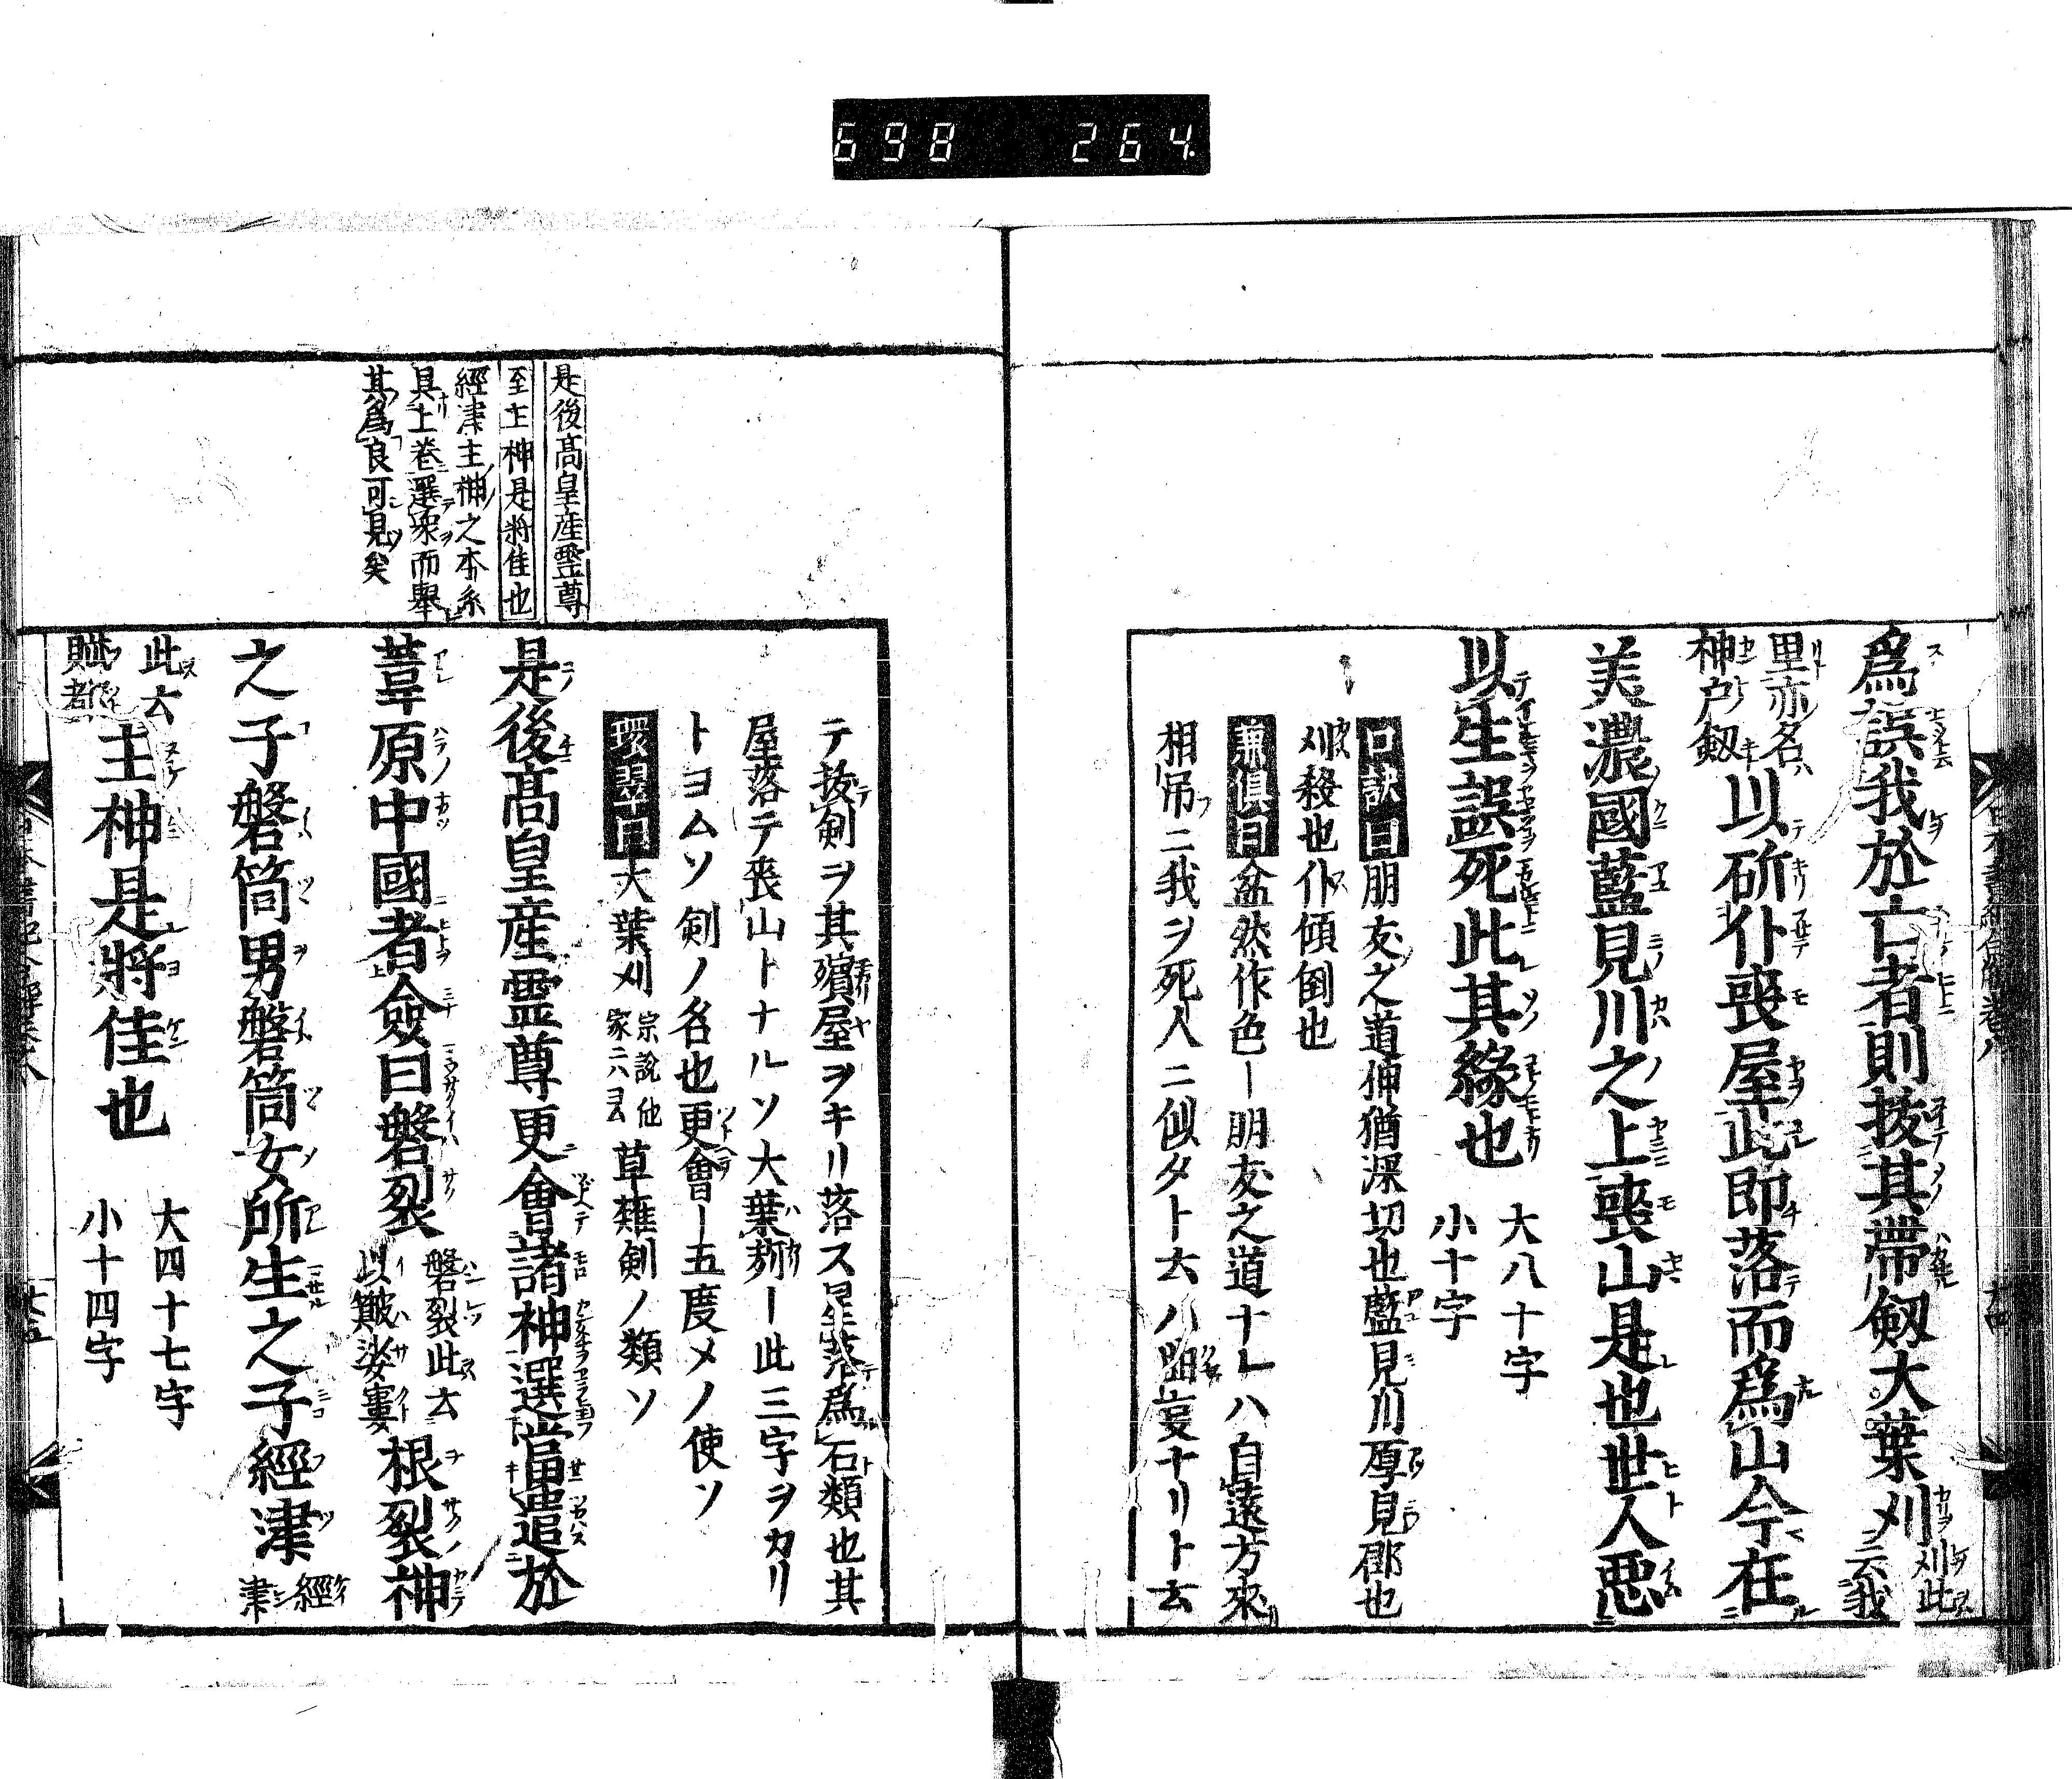 698 264
爲誤我於亡者則拔其帶劔大葉刈刈此云我
里亦名
神戸劔以斫仆喪屋此即落而爲山今在
美濃國藍見川之上喪山是也世人惡
以生誤死此其緣也
大八十字
小十字
口訣曰朋友之道伸猶深切也藍見川厚見郡也
刈殺也仆傾倒也
兼倶曰忿然作色ー朋友之道ナレハ自遠方來
相吊ニ我ヲ死人ニ似タト云ハ
ナリト云
テ拔剣ヲ其殯屋ヲキリ落ス星落爲石類也其
屋落テ喪山トナルソ大葉ー此三字ヲカリ
トヨムソ剣ノ名也更會ー五度メノ使ソ
環翠曰大葉刈
宗説他
家ニハ云草薙剣ノ類ソ
是後高皇産靈尊
至主神是將佳也
經津主神之本系
具上卷選衆而舉
其爲良可見矣
是後高皇産霊尊更會諸神選當遣於
葦原中國者僉曰磐裂
磐裂此云
以簸娑窶根裂神
之子磐筒男磐筒女所生之子經津
經
津
此云
賦都主神是將佳也
大四十七字
小十四字